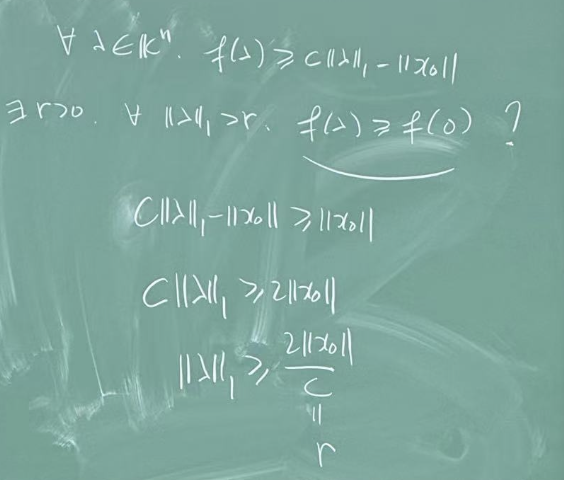 ∀ λ∈𝕂ⁿ. f(λ) ≥ C‖λ‖₁ - ‖x₀‖
∃ r>0. ∀ ‖λ‖₁ >r. f(λ) ≥ f(0) ?
C‖λ‖₁ - ‖x₀‖ ≥ ‖x₀‖
C‖λ‖₁ ≥ 2‖x₀‖
‖λ‖₁ ≥ 2‖x₀‖ / C
॥
r